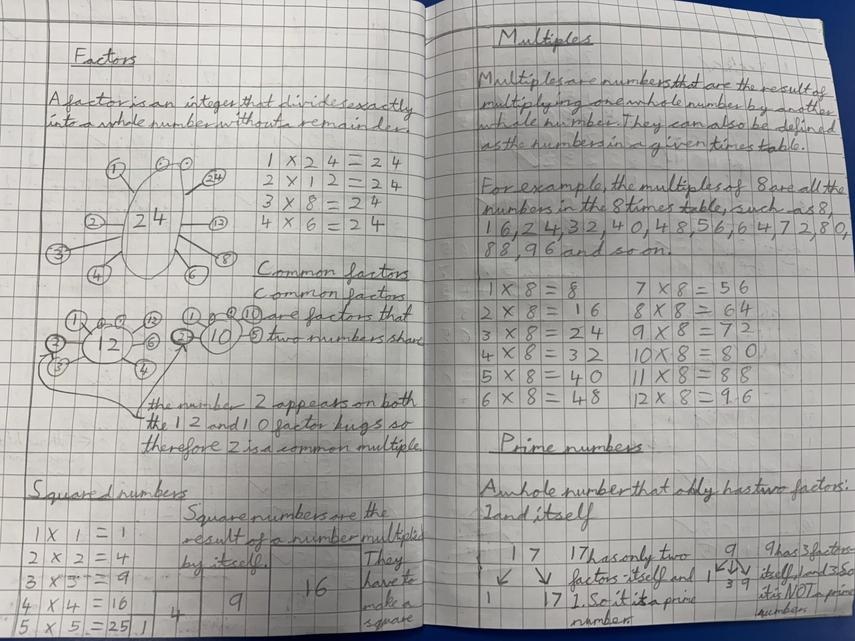 Factors
A factor is an integer that divides exactly
into a whole number without a remainder.
1 24
2 24 12
3 8
4 6
1 × 24 = 24
2 × 12 = 24
3 × 8 = 24
4 × 6 = 24
Common factors
Common factors
are factors that
two numbers share
1 12
2 12 6
3 4
1 10
2 10 5
the number 2 appears on both
the 12 and 10 factor bugs so
therefore 2 is a common multiple.
Squared numbers
1 × 1 = 1
2 × 2 = 4
3 × 3 = 9
4 × 4 = 16
5 × 5 = 25
Square numbers are the
result of a number multiplied
by itself. They
have to
make a
square
1 4 9 16
Multiples
Multiples are numbers that are the result of
multiplying one whole number by another
whole number. They can also be defined
as the numbers in a given times table.
For example, the multiples of 8 are all the
numbers in the 8 times table, such as 8,
16, 24, 32, 40, 48, 56, 64, 72, 80,
88, 96 and so on.
1 × 8 = 8 7 × 8 = 56
2 × 8 = 16 8 × 8 = 64
3 × 8 = 24 9 × 8 = 72
4 × 8 = 32 10 × 8 = 80
5 × 8 = 40 11 × 8 = 88
6 × 8 = 48 12 × 8 = 96
Prime numbers
A whole number that only has two factors:
1 and itself
17
1 17
17 has only two
factors-itself and
1. So it is a prime
number.
9
1 3 9
9 has 3 factors-
itself, 1 and 3. So
it is NOT a prime
numbers